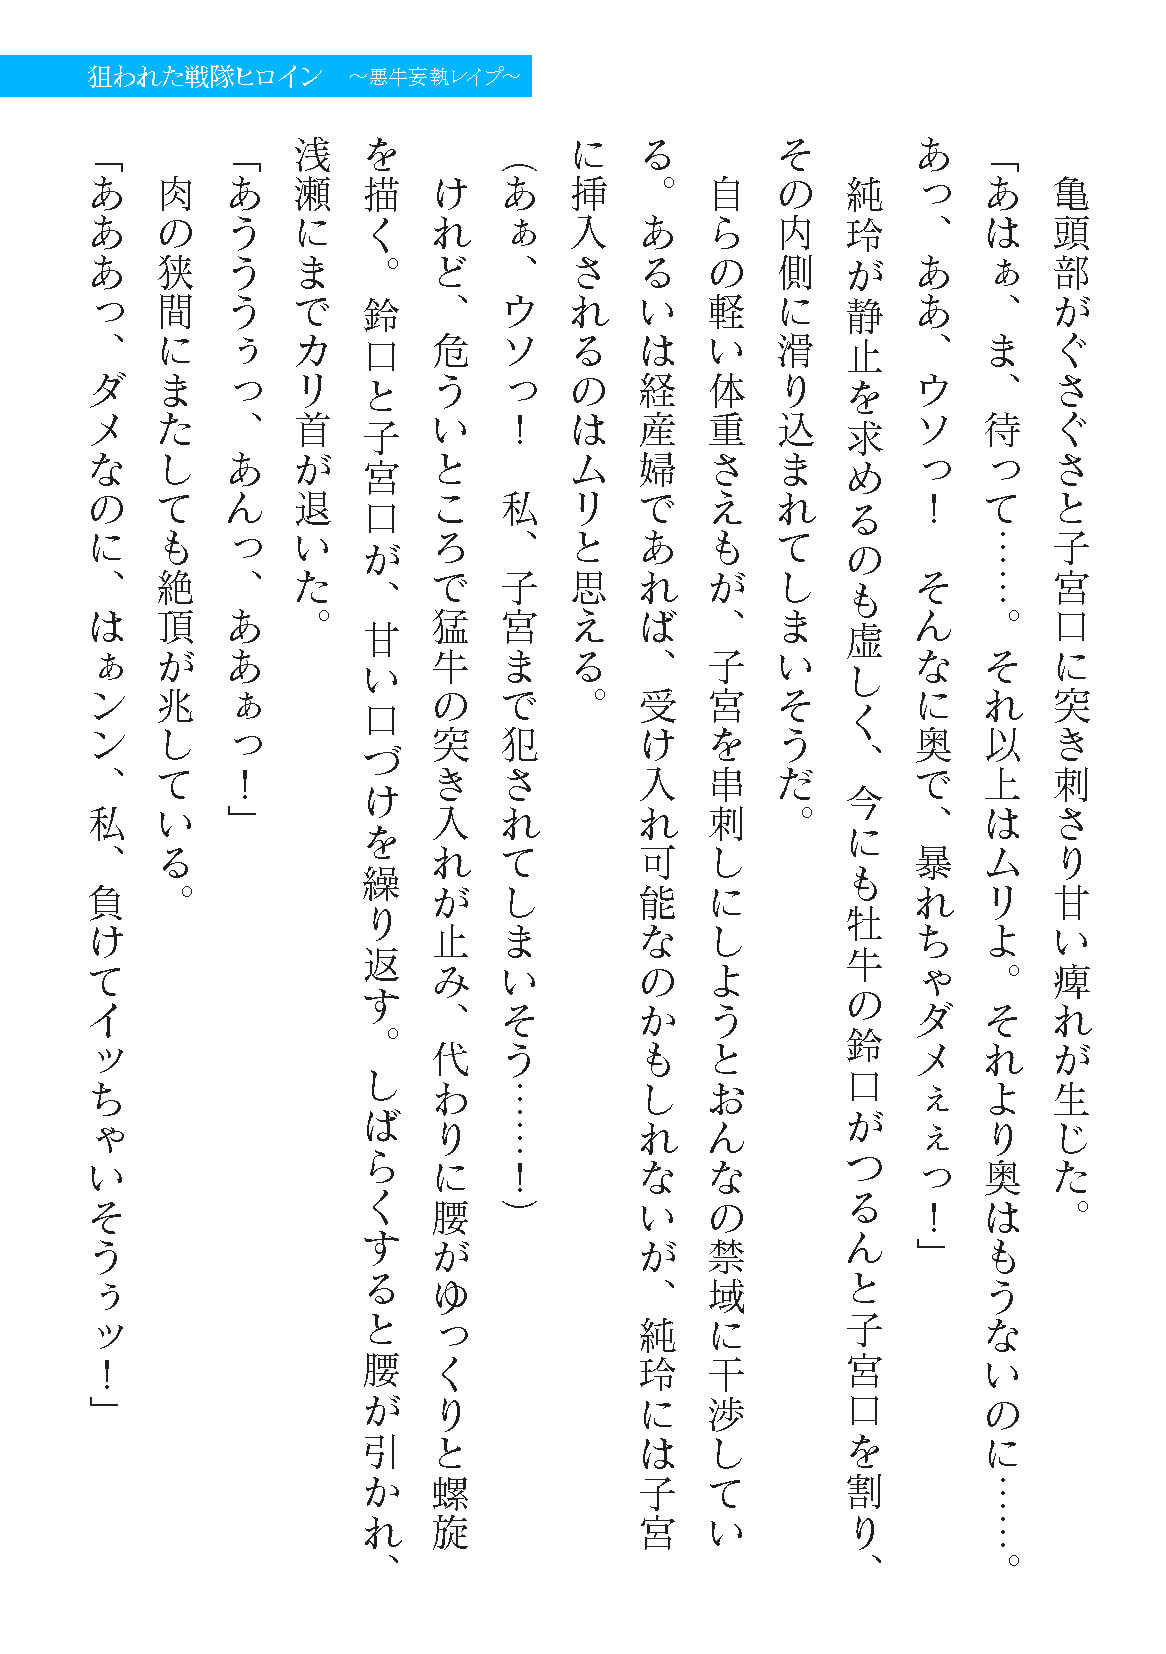 狙われた戦隊ヒロイン　～悪牛妄執レイプ～
　亀頭部がぐさぐさと子宮口に突き刺さり甘い痺れが生じた。
「あはぁ、ま、待って……。それ以上はムリよ。それより奥はもうないのに……。
あっ、ああ、ウソっ！　そんなに奥で、暴れちゃダメぇぇっ！」
　純玲が静止を求めるのも虚しく、今にも牡牛の鈴口がつるんと子宮口を割り、
その内側に滑り込まれてしまいそうだ。
　自らの軽い体重さえもが、子宮を串刺しにしようとおんなの禁域に干渉してい
る。あるいは経産婦であれば、受け入れ可能なのかもしれないが、純玲には子宮
に挿入されるのはムリと思える。
（あぁ、ウソっ！　私、子宮まで犯されてしまいそう……！）
　けれど、危ういところで猛牛の突き入れが止み、代わりに腰がゆっくりと螺旋
を描く。鈴口と子宮口が、甘い口づけを繰り返す。しばらくすると腰が引かれ、
浅瀬にまでカリ首が退いた。
「あうううぅっ、あんっ、ああぁっ！」
　肉の狭間にまたしても絶頂が兆している。
「あああっ、ダメなのに、はぁンン、私、負けてイッちゃいそうぅッ！」